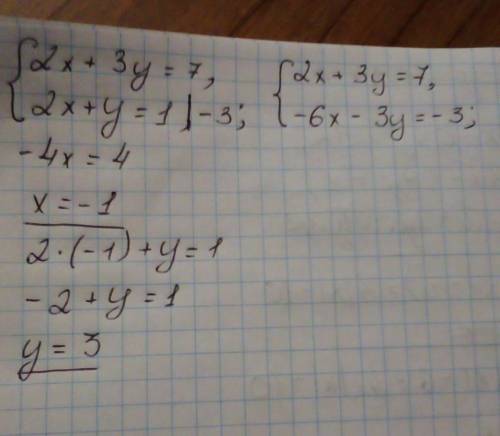 2x + 3y = 7,
2x + y = 1 | -3;
2x + 3y = 7,
-6x - 3y = -3;
-4x = 4
x = -1
2·(-1) + y = 1
-2 + y = 1
y = 3